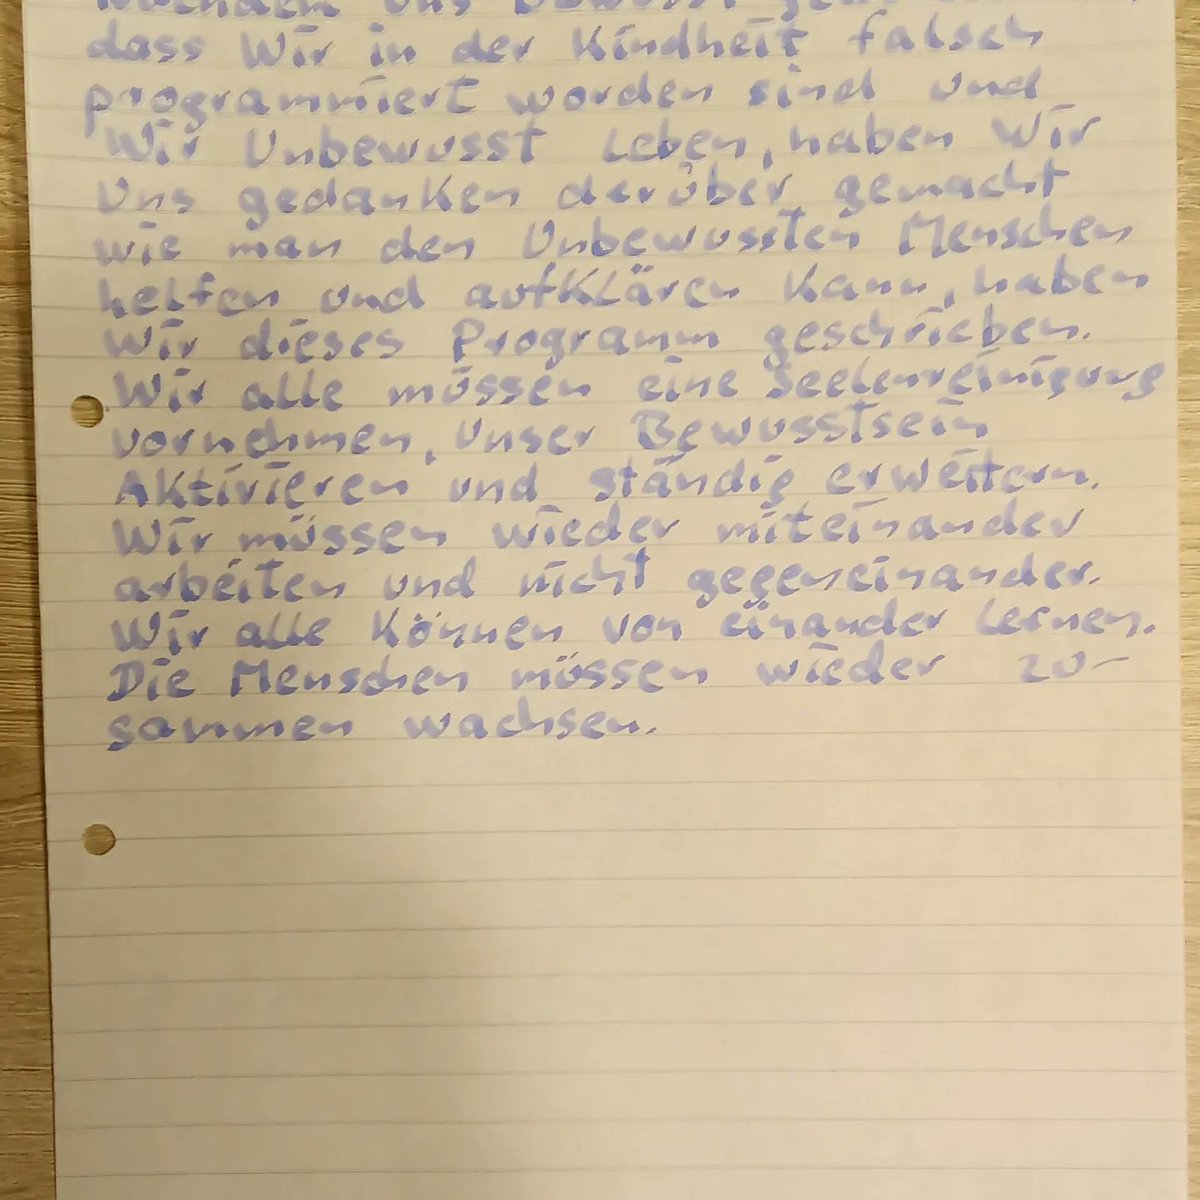 Nachdem Uns bewusst
dass Wir in der Kindheit falsch
programmiert worden sind und
Wir Unbewusst Leben, haben Wir
Uns gedanken derüber gemacht
wie man den Unbewussten Menschen
helfen und aufklären kann, haben
Wir dieses Programm geschrieben.
Wir alle müssen eine Seelenreinigung
vornehmen, Unser Bewusstsein
Aktivieren und ständig erweitern.
Wir müssen wieder miteinander
arbeiten und nicht gegeneinander.
Wir alle Können von einander Lernen.
Die Menschen müssen wieder zu-
sammen wachsen.